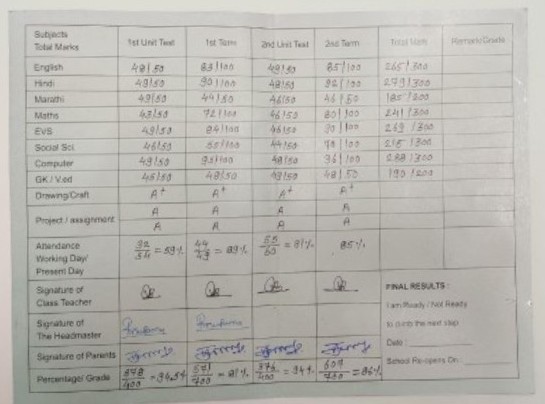 Subjects
Total Marks 1st Unit Test 1st Term 2nd Unit Test 2nd Term Total Mark Remark/Grade
English 49/50 83/100 49/50 85/100 265/300
Hindi 49/50 90/100 48/50 92/100 279/300
Marathi 49/50 44/50 46/50 46/50 185/200
Maths 43/50 72/100 46/50 80/100 241/300
EVS 49/50 84/100 46/50 90/100 269/300
Social Sci. 46/50 /100 44/50 /100 /300
Computer 49/50 95/100 48/50 96/100 288/300
GK / V.ed 45/50 48/50 49/50 48/50 190/200
Drawing/Craft A+ A+ A+ A+
Project / assignment A A A A
A A A A
Attendance
Working Day/
Present Day
44/49 = 89% 85%
Signature of
Class Teacher
FINAL RESULTS :
I am Ready / Not Ready
to the next step
Signature of
The Headmaster
Date :
Signature of Parents
School Re-opens On :
Percentage/ Grade 378/400 = 94.5% 571/700 = 81% 376/400 = 94% 607/700 = 86%